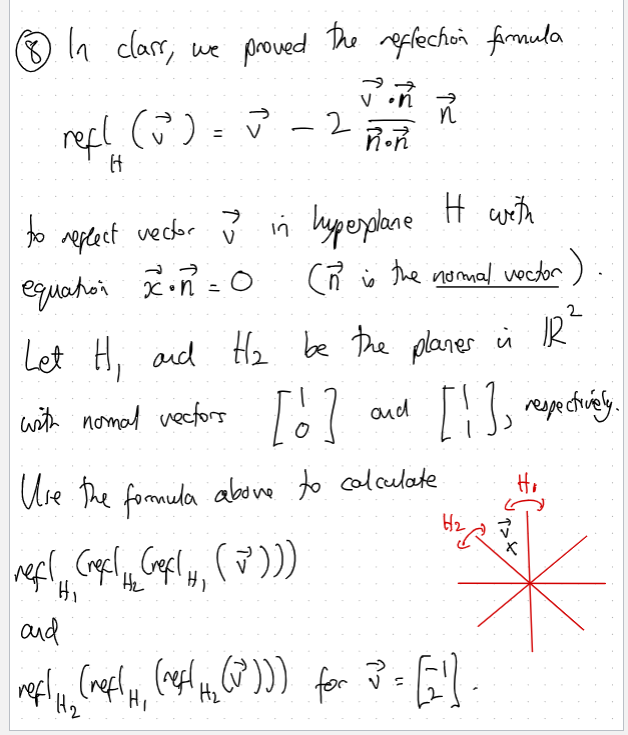 ⑧ In class, we proved the reflection formula
refl_H (v⃗) = v⃗ − 2 (v⃗·n⃗)/(n⃗·n⃗) n⃗
to reflect vector v⃗ in hyperplane H with
equation x⃗·n⃗ = 0 (n⃗ is the normal vector).
Let H₁ and H₂ be the planes in ℝ²
with normal vectors [1 0] and [1 1], respectively.
Use the formula above to calculate
H₁
H₂
v⃗
x
refl_H₁ (refl_H₂ (refl_H₁ (v⃗)))
and
refl_H₂ (refl_H₁ (refl_H₂ (v⃗))) for v⃗ = [−1 2].